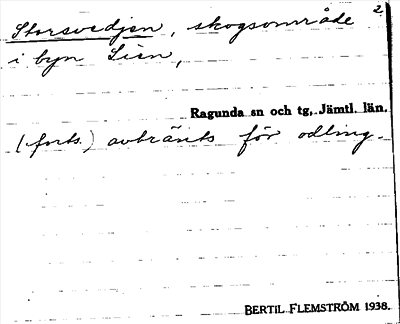 2.
Storsvedjen, skogsområde
i byn Lien,
Ragunda sn och tg, Jämtl. län.
(forts.) avbränts för odling.
BERTIL FLEMSTRÖM 1938.